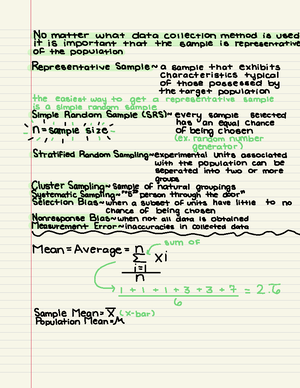 No matter what data collection method is used
it is important that the sample is representative
of the population
Representative Sample~ a sample that exhibits
characteristics typical
of those possessed by
the target population
the easiest way to get a representative sample
is a simple random sample
Simple Random Sample (SRS)~ every sample selected
has an equal chance
n = sample size
of being chosen
(ex. random number
generator)
Stratified Random Sampling~experimental units associated
with the population can be
seperated into two or more
groups
Cluster Sampling~ sample of natural groupings
Systematic Sampling~ "5th person through the door"
Selection Bias~ when a subset of units have little to no
chance of being chosen
Nonresponse Bias~ when not all data is obtained
Measurement Error~ inaccuracies in collected data
sum of
Mean = Average = n Σ i=1 xi
n
1 + 1 + 1 + 3 + 3 + 7 = 2.6
6
Sample Mean = x̄ (x-bar)
Population Mean = μ